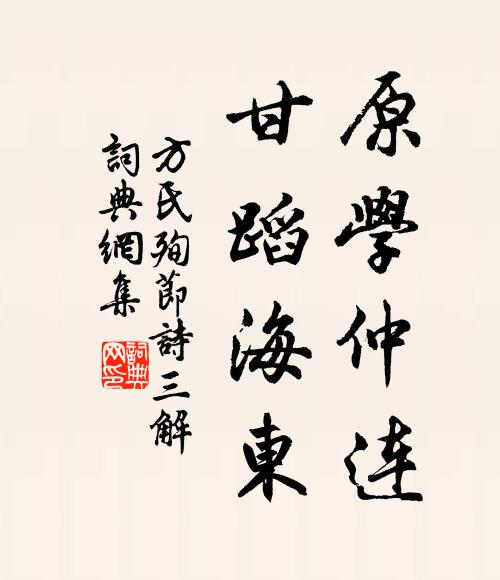 原學仲連
甘蹈海東
方氏殉節詩三解
詞典網集
詞典網印